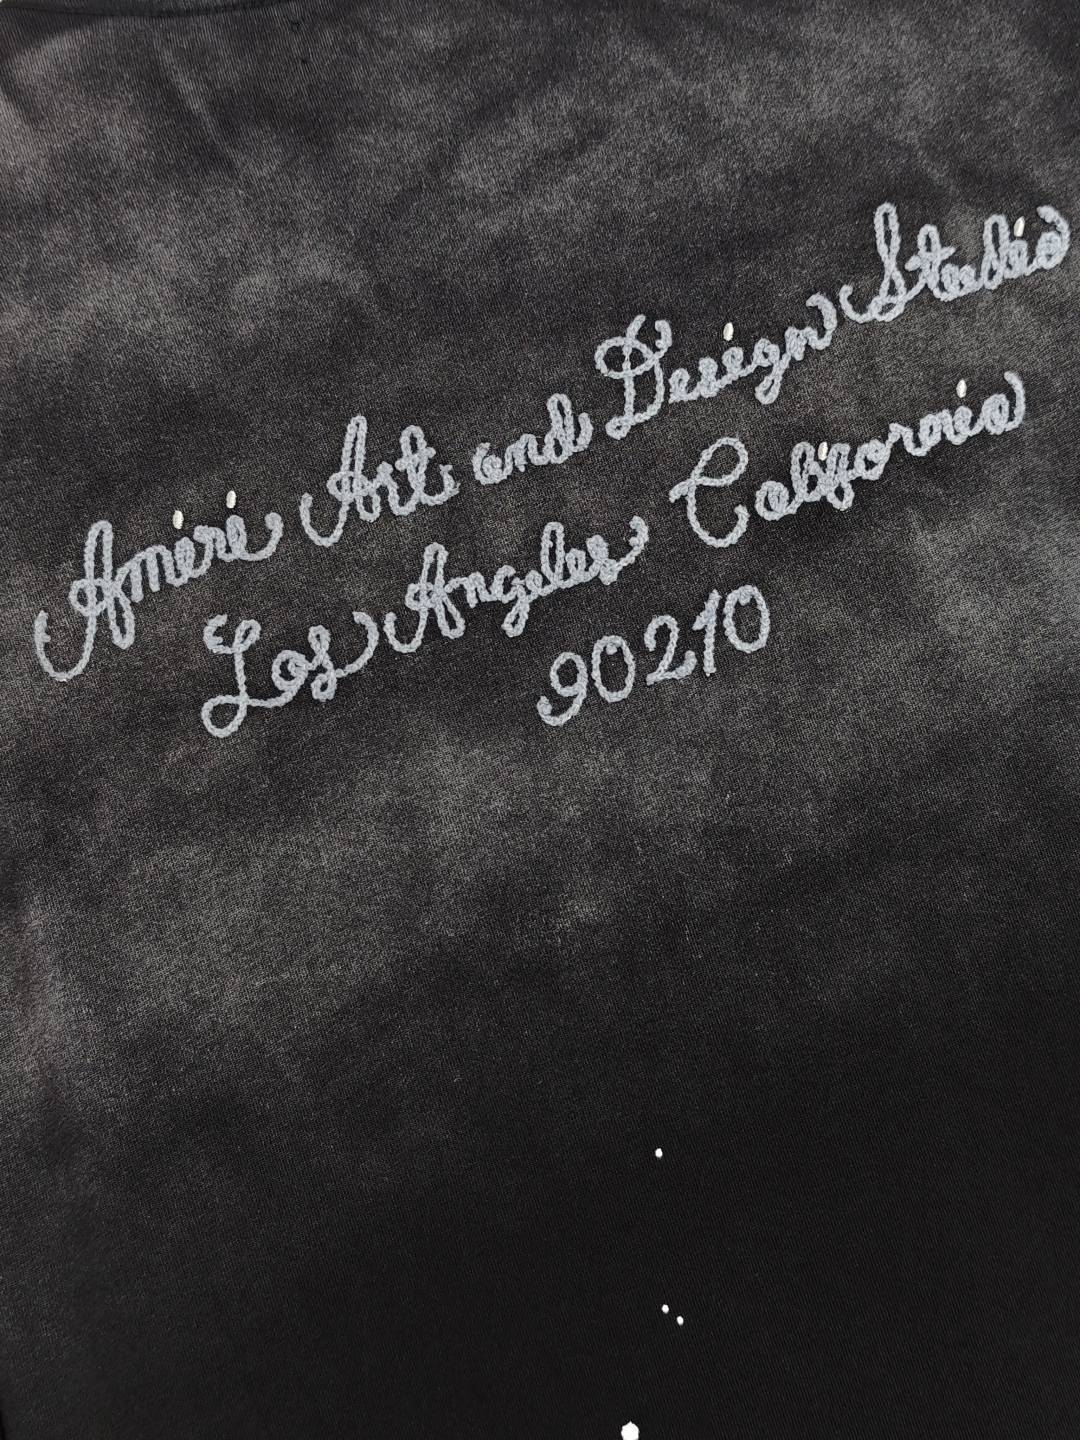 Amiri Art and Design Studio
Los Angeles California
90210